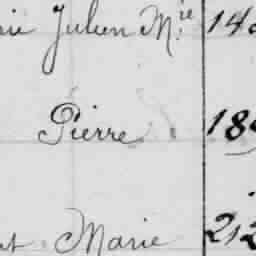 Julien M.ie 14
Pierre 18
Marie 212